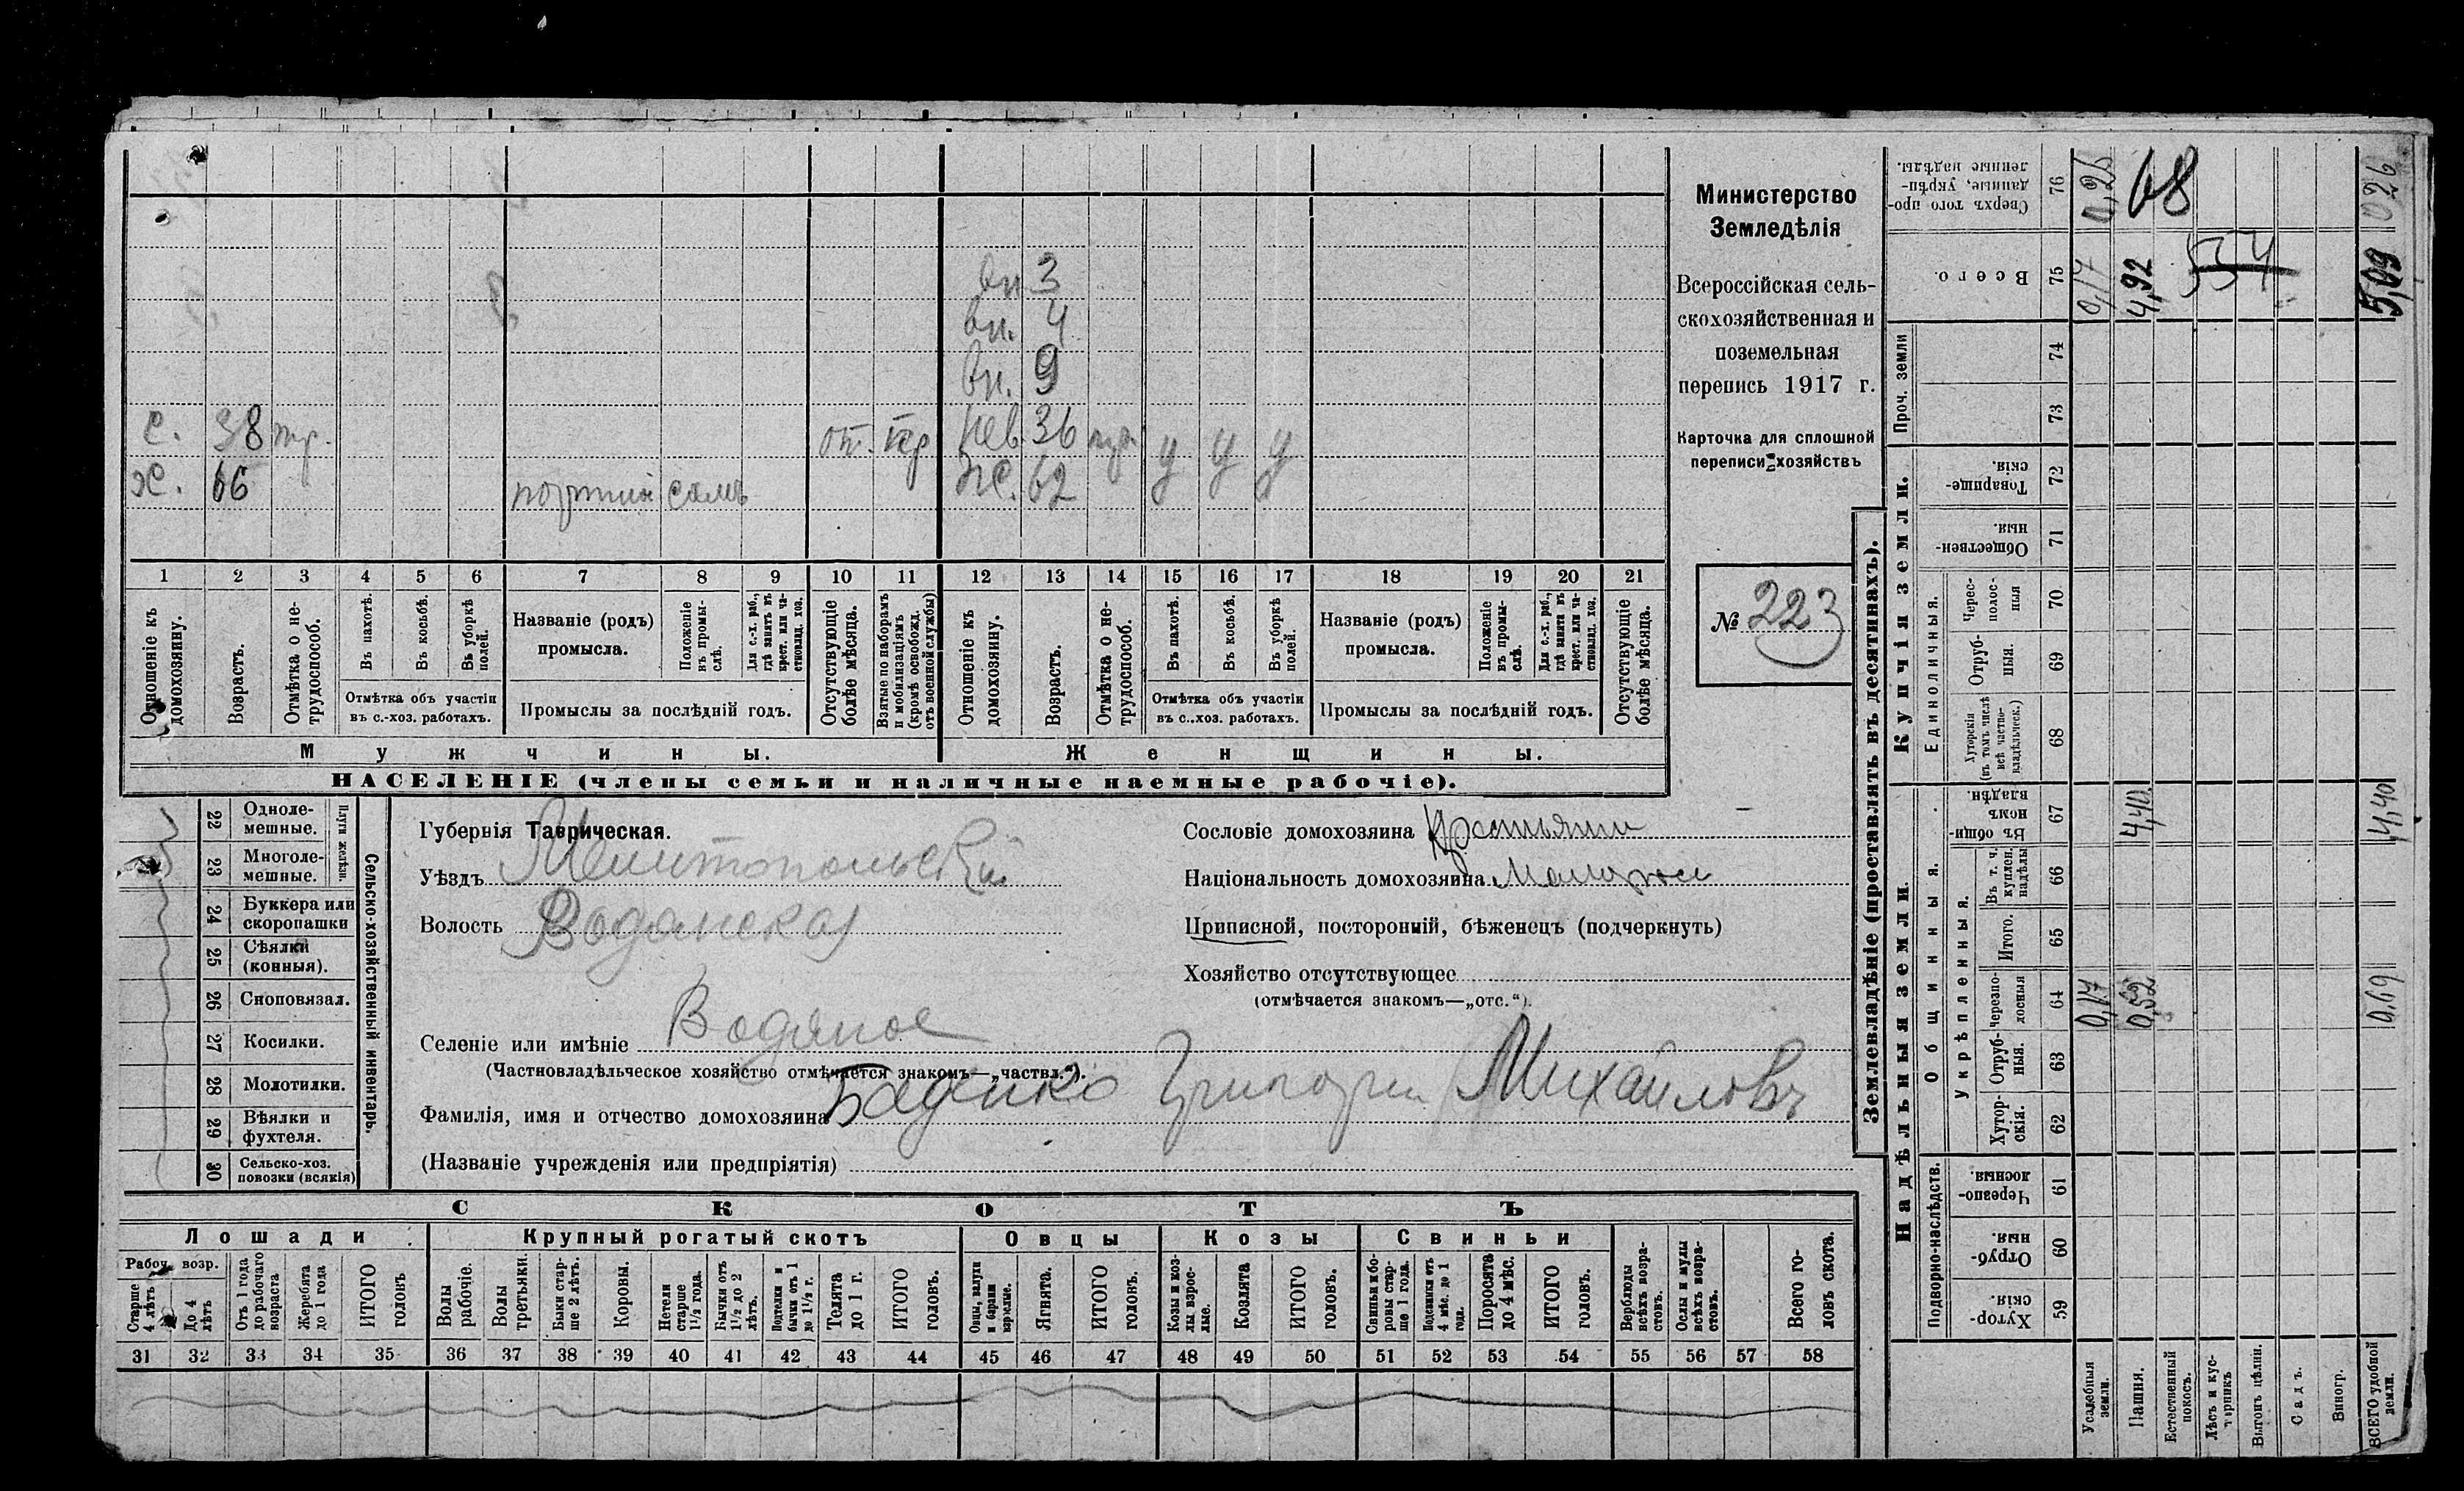 вн 3
вн. 4
вн. 9
с. 38 нтр. от. тер нев. 36 у у у
х. 66 портной самъ ж. 62
1 2 3 4 5 6 7 8 9 10 11 12 13 14 15 16 17 18 19 20 21
Отношеніе къ домохозяину.
Возрастъ.
Отмѣтка о не-
трудоспособ.
Въ пахотѣ.
Въ косьбѣ.
Въ уборкѣ полей.
Отмѣтка объ участіи
въ с.-хоз. работахъ.
Названіе (родъ)
промысла.
Положеніе въ промы-
слѣ.
Для с.-х. раб., гдѣ занятъ въ крест. или ча-
стновлад. хоз.
Промыслы за послѣдній годъ.
Отсутствующіе болѣе мѣсяца.
Взятые по наборамъ и мобилизаціямъ (кромѣ освобожд. отъ военной службы)
Отношеніе къ домохозяину.
Возрастъ.
Отмѣтка о не-
трудоспособ.
Въ пахотѣ.
Въ косьбѣ.
Въ уборкѣ полей.
Отмѣтка объ участіи
въ с..хоз. работахъ.
Названіе (родъ)
промысла.
Положеніе въ промы-
слѣ.
Для с.-х. раб., гдѣ занята въ крест. или ча-
стновлад. хоз.
Промыслы за послѣдній годъ.
Отсутствующіе болѣе мѣсяца.
Мужчины.
Женщины.
НАСЕЛЕНІЕ (члены семьи и наличные наемные рабочіе).
Министерство
Земледѣлія
Всероссійская сель-
скохозяйственная и
поземельная
перепись 1917 г.
Карточка для сплошной
переписи хозяйствъ
№ 223
22 Одноле-
мешные.
23 Многоле-
мешные.
Плуги желѣзн.
24 Буккера или
скоропашки
25 Сѣялки
(конныя).
26 Сноповязал.
27 Косилки.
28 Молотилки.
29 Вѣялки и
фухтеля.
30 Сельско-хоз.
повозки (всякія)
Сельско-хозяйственный инвентарь.
Губернія Таврическая.
Уѣздъ Мелитопольскій
Волость Водянская
Селеніе или имѣніе Водяное
(Частновладѣльческое хозяйство отмѣчается знакомъ—„частвл.“).
Фамилія, имя и отчество домохозяина Баденко Григорий Михайловъ
(Названіе учрежденія или предпріятія)
Сословіе домохозяина Крестьянин
Національность домохозяина Малорос
Приписной, посторонній, бѣженецъ (подчеркнуть)
Хозяйство отсутствующее
(отмѣчается знакомъ—„отс.“).
СКОТЪ
Лошади
Крупный рогатый скотъ
Овцы
Козы
Свиньи
Рабоч. возр.
Старше 4 лѣтъ
До 4 лѣтъ
Отъ 1 года до рабочаго возраста
Жеребята до 1 года
ИТОГО головъ
Волы рабочіе.
Волы третьяки.
Быки стар-
ше 2 лѣтъ.
Коровы.
Нетели старше 1½ года.
Бычки отъ 1½ до 2 лѣтъ.
Подтелки и бычки отъ 1 до 1½ г.
Телята до 1 г.
ИТОГО головъ.
Овцы, валухи и бараны взрослые.
Ягнята.
ИТОГО головъ.
Козы и коз-
лы взрос-
лые.
Козлята
ИТОГО головъ.
Свиньи и бо-
ровы стар-
ше 1 года.
Подсвинки отъ 4 мѣс. до 1 года.
Поросята до 4 мѣс.
ИТОГО головъ.
Верблюды всѣхъ возра-
стовъ.
Ослы и мулы всѣхъ возра-
стовъ.
Всего го-
ловъ скота.
31 32 33 34 35 36 37 38 39 40 41 42 43 44 45 46 47 48 49 50 51 52 53 54 55 56 57 58
Землевладѣніе (проставлять въ десятинахъ).
Надѣльныя земли.
Купчія земли.
Проч. земли
Подворно-наслѣдств.
Общинныя.
Укрѣпленныя.
Единоличныя.
Хутор-
скія. 59
Отруб-
ныя. 60
Черезпо-
лосныя. 61
Хутор-
скія. 62
Отруб-
ныя. 63
Черезпо-
лосныя 64
Итого. 65
Въ т. ч. куплен. надѣлы 66
Въ общин-
номъ владѣн. 67
Хуторскія (въ томъ числѣ всѣ частно-
владѣльческ.) 68
Отруб-
ныя. 69
Черес-
полос-
ныя 70
Обществен-
ныя. 71
Товарище-
скія. 72
73
74
Всего. 75
Сверхъ того про-
данные, укрѣп-
ленные надѣлы. 76
Усадебныя земли. 0,17 0,17 0,26
Пашня. 0,52 4,40 4,92 68
Естественный покосъ.
Лѣсъ и кус-
тарникъ 554
Выгонъ цѣлин.
Садъ.
Виногр.
ВСЕГО удобной земли. 0,69 4,40 5,09 0,26